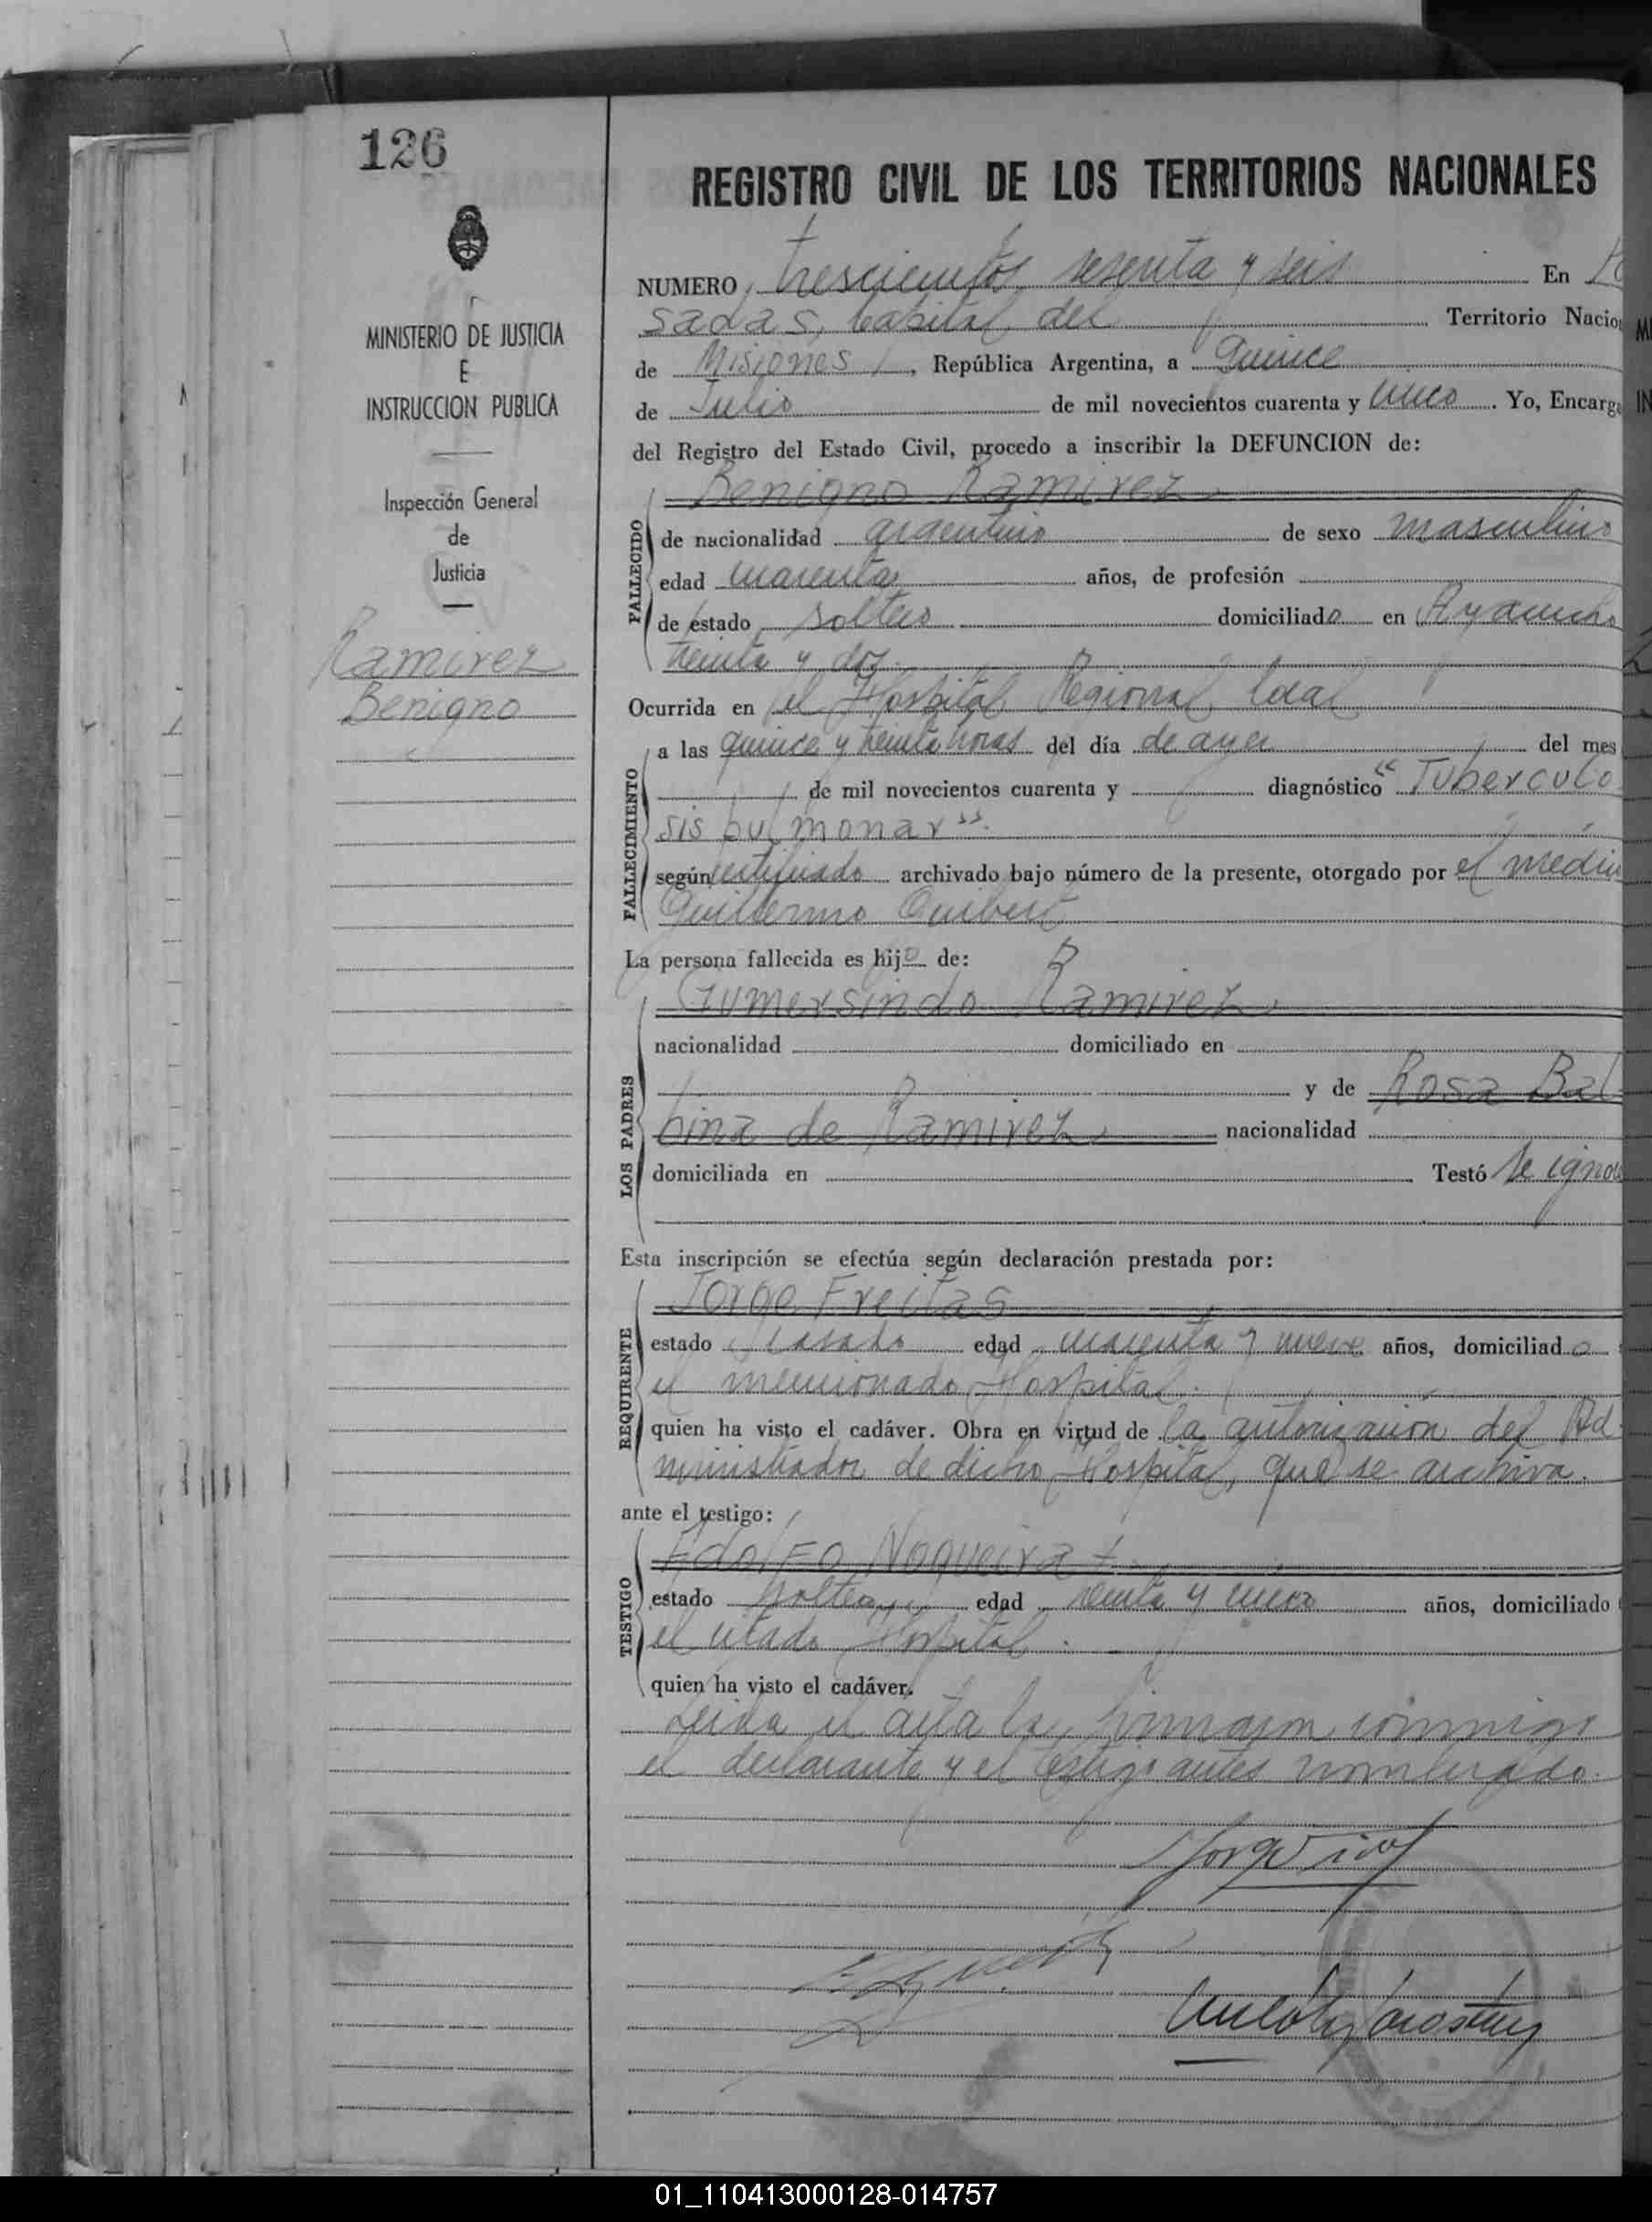 126
REGISTRO CIVIL DE LOS TERRITORIOS NACIONALES
MINISTERIO DE JUSTICIA
E
INSTRUCCION PUBLICA
Inspección General
de
Justicia
Ramirez
Benigno
NUMERO trescientos sesenta y seis En Po
sadas, Capital del Territorio Nacio
de Misiones, República Argentina, a Quince
de Julio de mil novecientos cuarenta y cinco. Yo, Encarg
del Registro del Estado Civil, procedo a inscribir la DEFUNCION de:
Benigno Ramirez
FALLECIDO
de nacionalidad argentino de sexo masculino
edad cuarenta años, de profesión
de estado soltero domiciliado en Ayacucho
treinta y dos.
Ocurrida en el Hospital Regional local
FALLECIMIENTO
a las quince y treinta horas del día de ayer del mes
de mil novecientos cuarenta y diagnóstico "Tuberculo
sis pulmonar".
según certificado archivado bajo número de la presente, otorgado por el médico
Guillermo
La persona fallecida es hijo de:
LOS PADRES
Gumersindo Ramirez
nacionalidad domiciliado en
y de Rosa Bal
bina de Ramirez nacionalidad
domiciliada en Testó se ignora
Esta inscripción se efectúa según declaración prestada por:
REQUIRENTE
Jorge Freitas
estado casado edad cuarenta y nueve años, domiciliado
el mencionado Hospital.
quien ha visto el cadáver. Obra en virtud de la autorización del Ad
ministrador de dicho Hospital, que se archiva.
ante el testigo:
TESTIGO
Adolfo Nogueira
estado soltero edad treinta y cinco años, domiciliado
el citado Hospital.
quien ha visto el cadáver.
Leida el acta la firmaron conmigo
el declarante y el testigo antes nombrado.
01_110413000128-014757